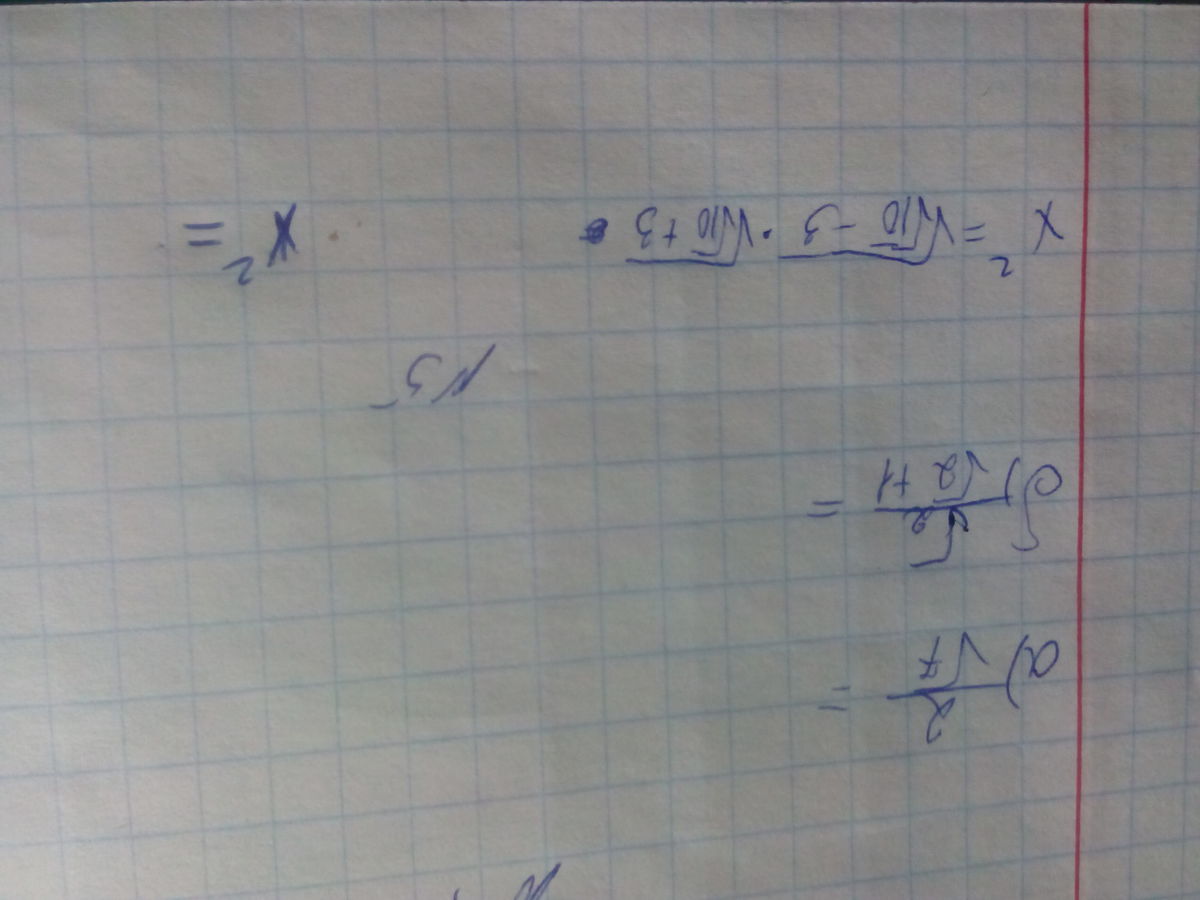 а) 2/√7 =
б) √2/(√2 + 1) =
№5
x² = √(√10 - 3) · √(√10 + 3) x² =